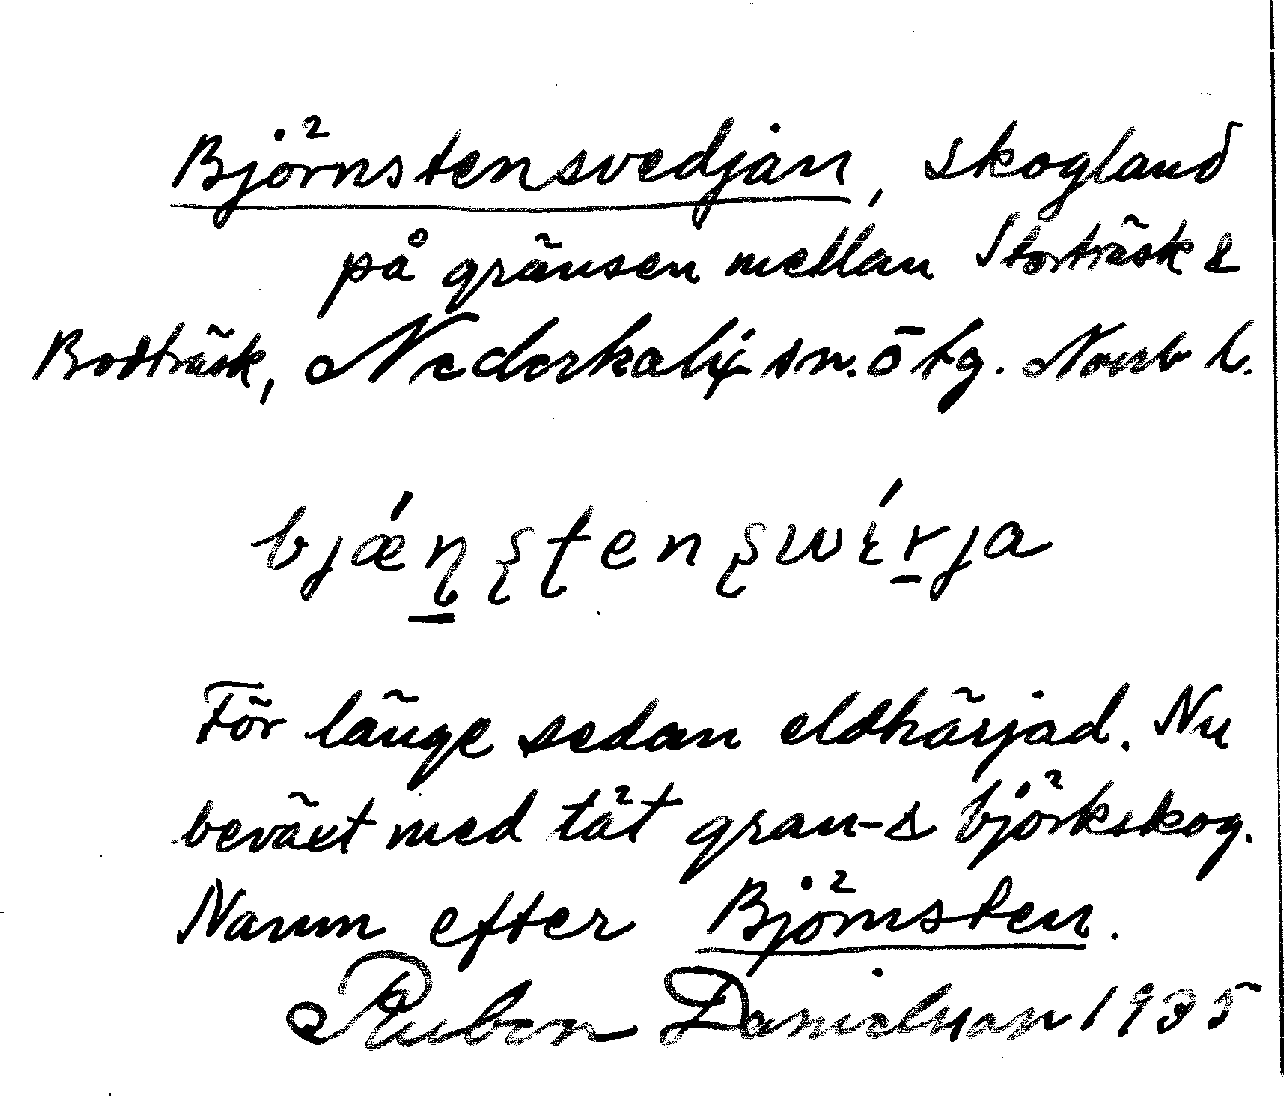 Björnstensvedjan, skogland
på gränsen mellan Storträsk &
Bodträsk, Nederkalix sn. ö tg. Norrb l.
bjǽṇṣṭenṣwέ́rja
För länge sedan eldhärjad. Nu
beväxt med tät gran- & björkskog.
Namn efter Björnsten.
Ruben Danielsson 1935